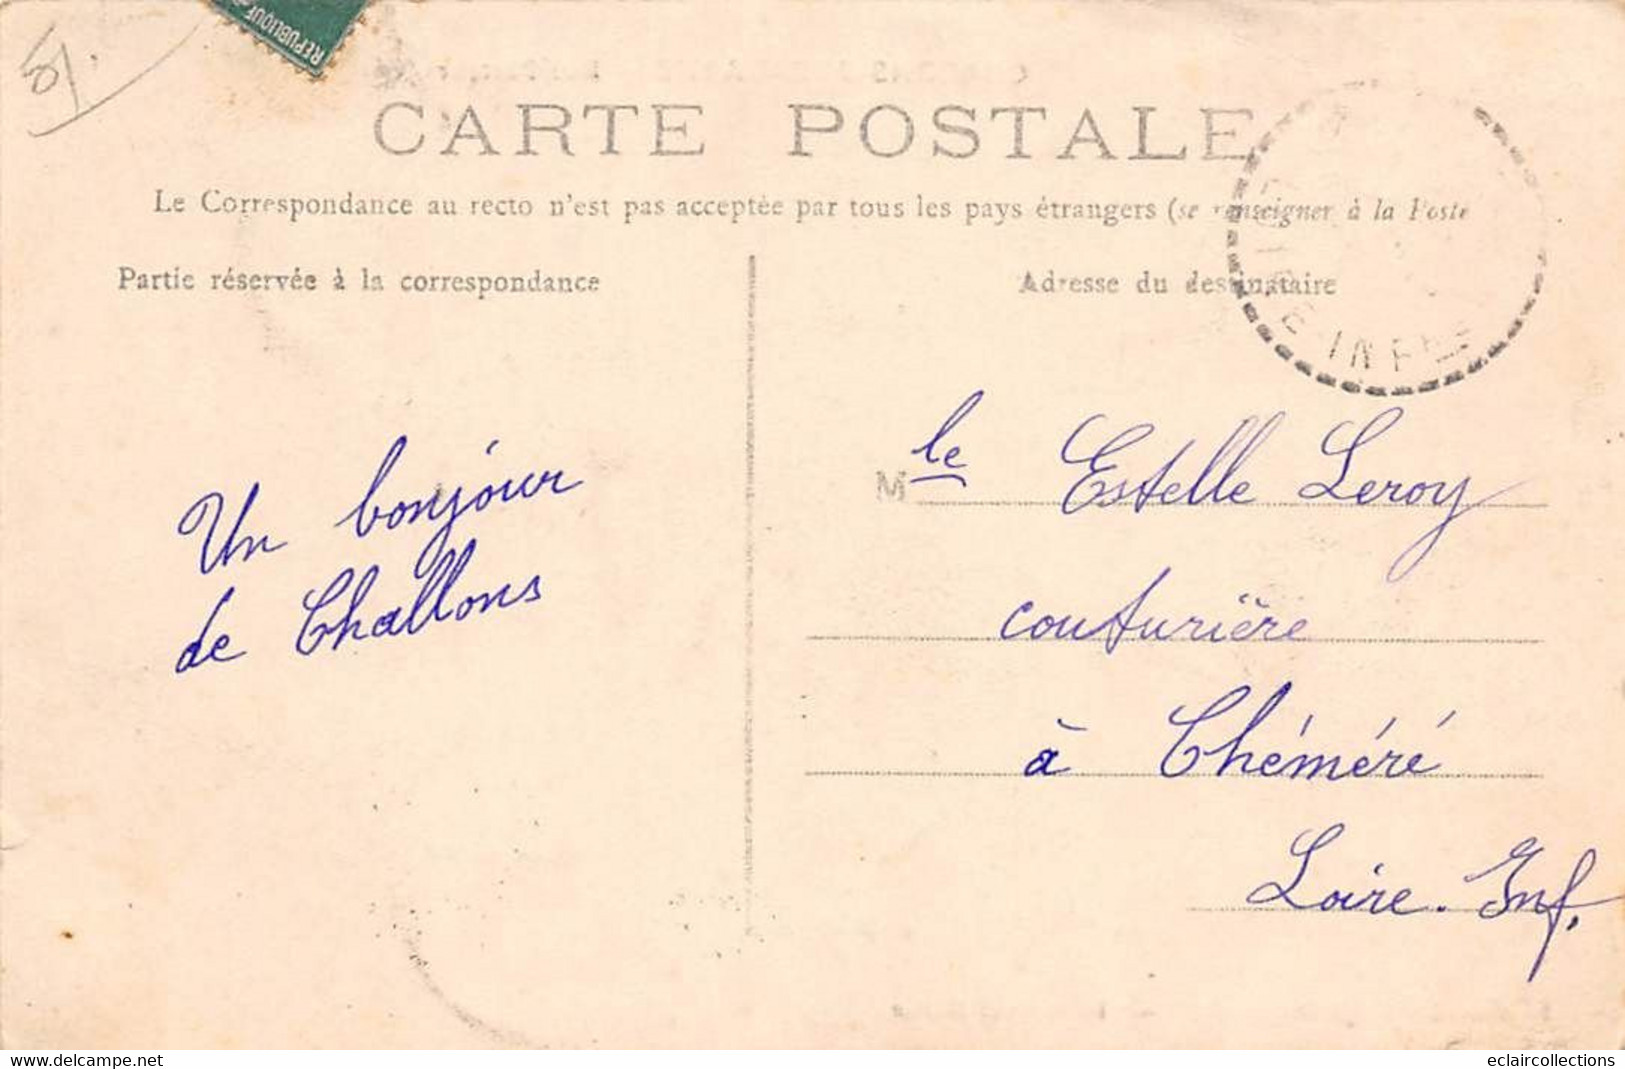 51.
REPUBLIQUE
CARTE POSTALE
Le Correspondance au recto n'est pas acceptée par tous les pays étrangers (se renseigner à la Poste
Partie réservée à la correspondance
Adresse du destinataire
INF
Un bonjour
de Challons
Mle Estelle Leroy
couturière
à Chéméré
Loire-Inf.
eclaircollections